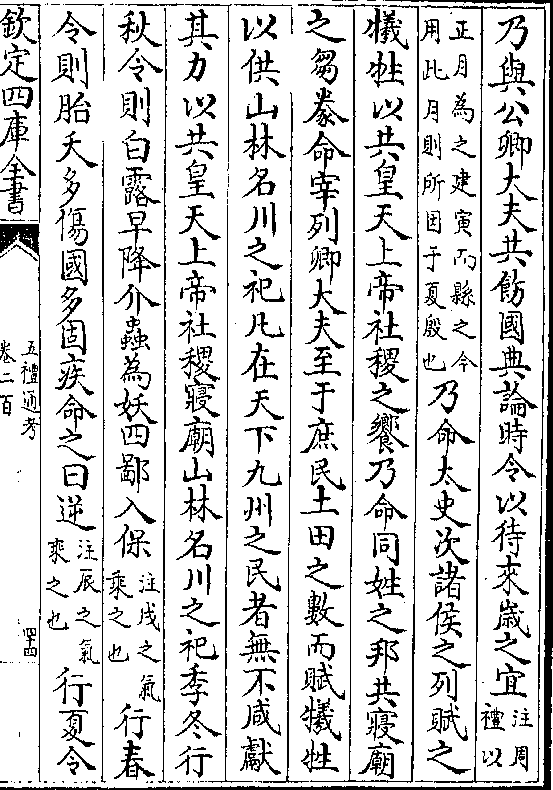 乃與公卿大夫共飭國典論時令以待來歲之宜注周禮以
正月為之建寅而縣之今用此月則所因于夏殷也乃命太史次諸侯之列賦之
犧牲以共皇天上帝社稷之饗乃命同姓之邦共寢廟
之芻豢命宰列卿大夫至于庶民土田之數而賦犧牲
以供山林名川之祀凡在天下九州之民者無不咸獻
其力以共皇天上帝社稷寢廟山林名川之祀季冬行
秋令則白露早降介蟲為妖四鄙入保注戌之氣乘之也行春
令則胎夭多傷國多固疾命之曰逆注辰之氣乘之也行夏令
欽定四庫全書
五禮通考
卷二百
四十四